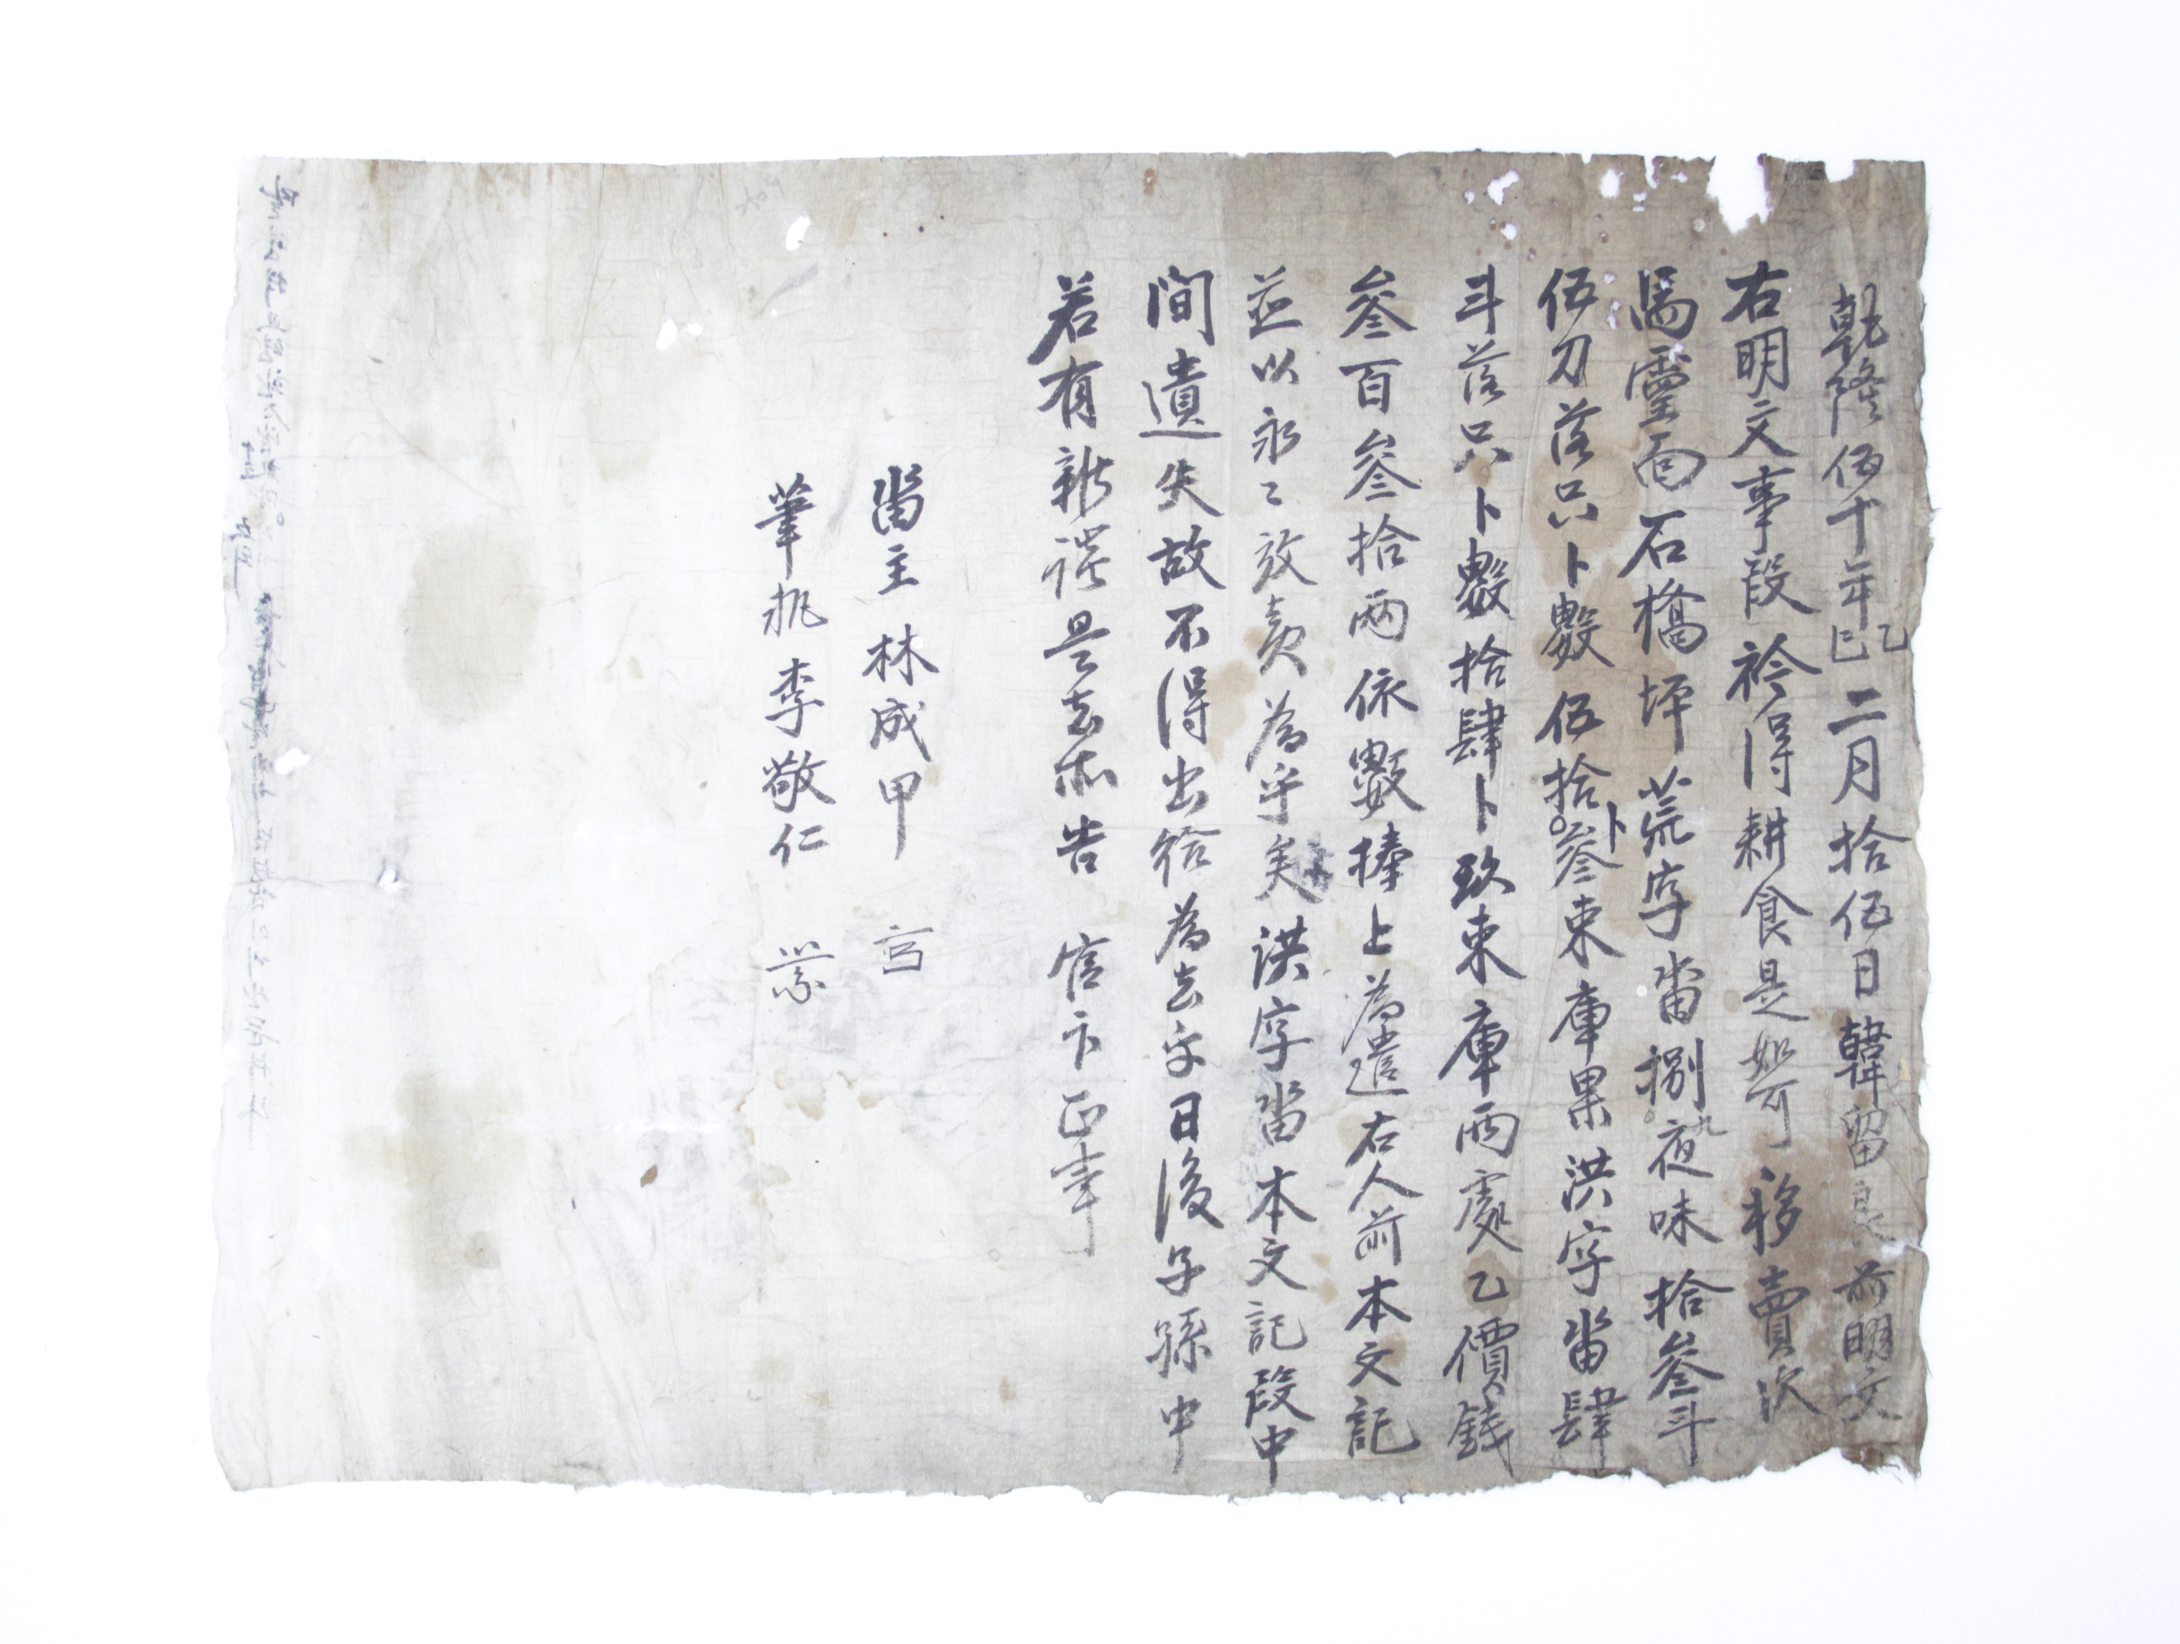 乾隆伍十年乙巳二月拾伍日韓留良前明文
右明文事段衿得耕食是如可移賣次
馬靈面石橋坪荒字畓捌九夜味拾參斗
伍刀落只卜數伍拾卜參束庫果洪字畓肆
斗落只卜數拾肆卜玖束庫兩處乙價錢
參百參拾兩依數捧上為遣右人前本文記
並以永〻放賣為乎矣洪字畓本文記段中
間遺失故不得出給為去乎日後子孫中
若有雜談是去亦告官卞正事
畓主林成甲
筆執李敬仁